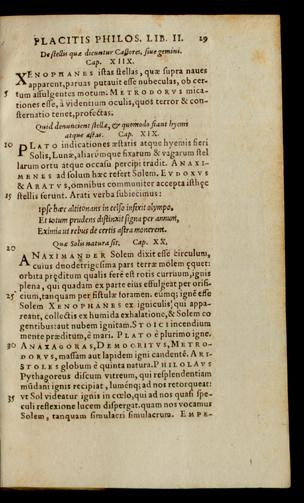 PLACITIS PHILOS. LIB. II. 29
De stellis quæ dicuntur Castores, siue gemini.
Cap. XIIX.
XENOPHANES istas stellas, quæ supra naues
apparent, paruas putauit esse nubeculas, ob cer
5 tum assulgentes motum. METRODORVS mica-
tiones esse, à videntium oculis, quos terror & con-
sternatio tenet, profectas.
Quid denuncient stellæ, & quomodo fiant hyemi
atque æstas. Cap. XIX.
10 PLATO indicationes æstatis atque hyemis fieri
Solis, Lunæ, aliarúmque fixarum & vagarum stel
larum ortu atque occasu percipi tradit. ANAXI-
MENES ad solum hæc refert Solem. EVDOXVS
& ARATVS, omnibus communiter accepta isthęc
15 stellis ferunt. Arati verba subiecimus:
Ipse hæc altitonans in celso infixit olympo,
Et totum prudens distinxit signa per annum,
Eximia ut rebus de certis astra monerent.
Quæ Solis natura sit. Cap. XX.
20 ANAXIMANDER Solem dixit esse circulum,
cuius duodetrigesima pars terræ molem ęquet:
orbita pręditum qualis ferè est rotis curruum, ignis
plena, qui quadam ex parte eius effulgeat per orifi-
25 cium, tanquam per fistulæ foramen. eúmq; ignē esse
Solem XENOPHANES ex igniculis, qui appa-
reant, collectis ex humida exhalatione, & Solem co
gentibus: aut nubem ignitam. STOICI incendium
mente præditum, è mari. PLATO è plurimo igne.
30 ANAXAGORAS, DEMOCRITVS, METRO-
DORVS, massam aut lapidem igni candentē. ARI-
STOLES globum è quinta natura. PHILOLAVS
Pythagoreus discum vitreum, qui resplendentiam
mūdani ignis recipiat, lumēnq; ad nos retorqueat:
35 vt Sol videatur ignis in cœlo, qui ad nos quasi spe-
culi reflexione lucem dispergat. quam nos vocamus
Solem, tanquam simulacri simulacrum. EMPE-